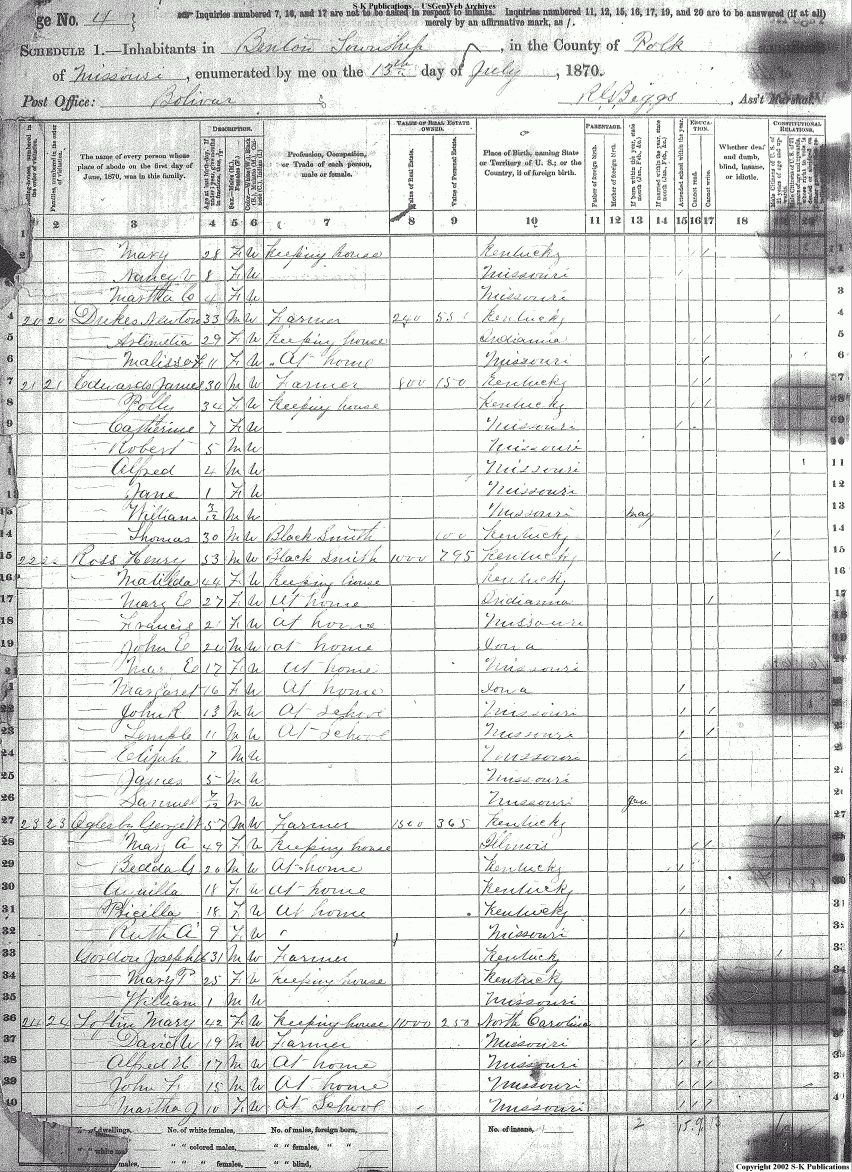 S-K Publications – USGenWeb Archives
ge No. 4
Inquiries numbered 7, 16, and 17 are not to be asked in respect to infants. Inquiries numbered 11, 12, 15, 16, 17, 19, and 20 are to be answered (if at all)
merely by an affirmative mark, as /.
SCHEDULE 1.—Inhabitants in Benton Township, in the County of Polk
of Missouri, enumerated by me on the 13th day of July, 1870.
Post Office: Bolivar R G Beggs, Ass't Marshal.
DESCRIPTION. VALUE OF REAL ESTATE OWNED. PARENTAGE. EDUCATION. CONSTITUTIONAL RELATIONS.
The name of every person whose place of abode on the first day of June, 1870, was in this family.
Profession, Occupation, or Trade of each person, male or female.
Value of Real Estate.
Value of Personal Estate.
Place of Birth, naming State or Territory of U. S.; or the Country, if of foreign birth.
Father of foreign birth.
Mother of foreign birth.
Attended school within the year.
Cannot read.
Cannot write.
Whether deaf and dumb, blind, insane, or idiotic.
1 2 3 4 5 6 7 8 9 10 11 12 13 14 15 16 17 18
Mary 28 F W Keeping house Kentucky / /
Nancy V 8 F W Missouri
Martha C 4 F W Missouri
4 20 20 Dukes Newton 33 M W Farmer 240 Kentucky /
5 29 F W Keeping house Indianna / /
6 11 F W At home Missouri /
7 21 21 Edwards James 30 M W Farmer 800 150 Kentucky / /
8 Polly 34 F W Keeping house Kentucky / /
9 Catherine 7 F W Missouri /
Robert 5 M W Missouri
Alfred 4 M W Missouri
Jane 1 F W Missouri
William 3/12 M W Missouri May
14 Thomas 30 M W Black Smith 100 Kentucky /
15 22 Ross Henry 53 M W Black Smith 1000 795 Kentucky /
16 Matilda 44 F W Keeping house Kentucky
17 Mary E 27 F W At home Indianna /
18 Francis F W At home Missouri
19 John E M W at home Iowa
17 F W At home Missouri
Margaret 16 F W At home Iowa /
22 John R 13 M W At School Missouri / /
23 Temple 11 M W At School Missouri / /
24 Elijah 7 M W Missouri /
25 James 5 M W Missouri
26 Samuel 7/12 M W Missouri Jan
27 23 23 Oglesby George W 57 M W Farmer 1500 365 Kentucky /
28 Mary A 49 F W Keeping house Illinois / /
29 20 M W At home Kentucky /
30 18 F W At home Kentucky /
31 Pricilla 18 F W At home Kentucky /
32 Ruth A 9 F W Missouri /
33 Gordon Joseph 31 M W Farmer Kentucky /
34 Mary P 25 F W Keeping house Kentucky
35 William 1 M W Missouri
36 24 24 Loftin Mary 42 F W Keeping house 1000 250 North Carolina
37 David W 19 M W Farmer Missouri / /
38 Alfred H 17 M W At home Missouri / / /
39 John F 15 M W At home Missouri / / /
40 Martha J 10 F W At School Missouri / / /
No. of dwellings, No. of white females, No. of males, foreign born, No. of insane, 2
" " colored males, " " females, " "
males, " " females, " " blind,
Copyright 2002 S-K Publications